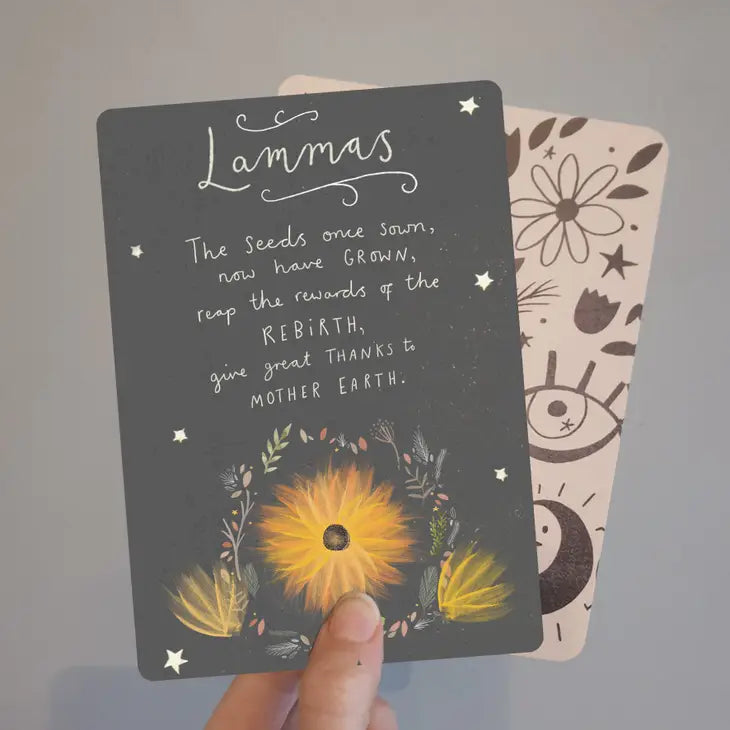 Lammas
The Seeds once sown,
now have GROWN,
reap the rewards of the
REBiRTH,
give great THANKS to
MOTHER EARTH.